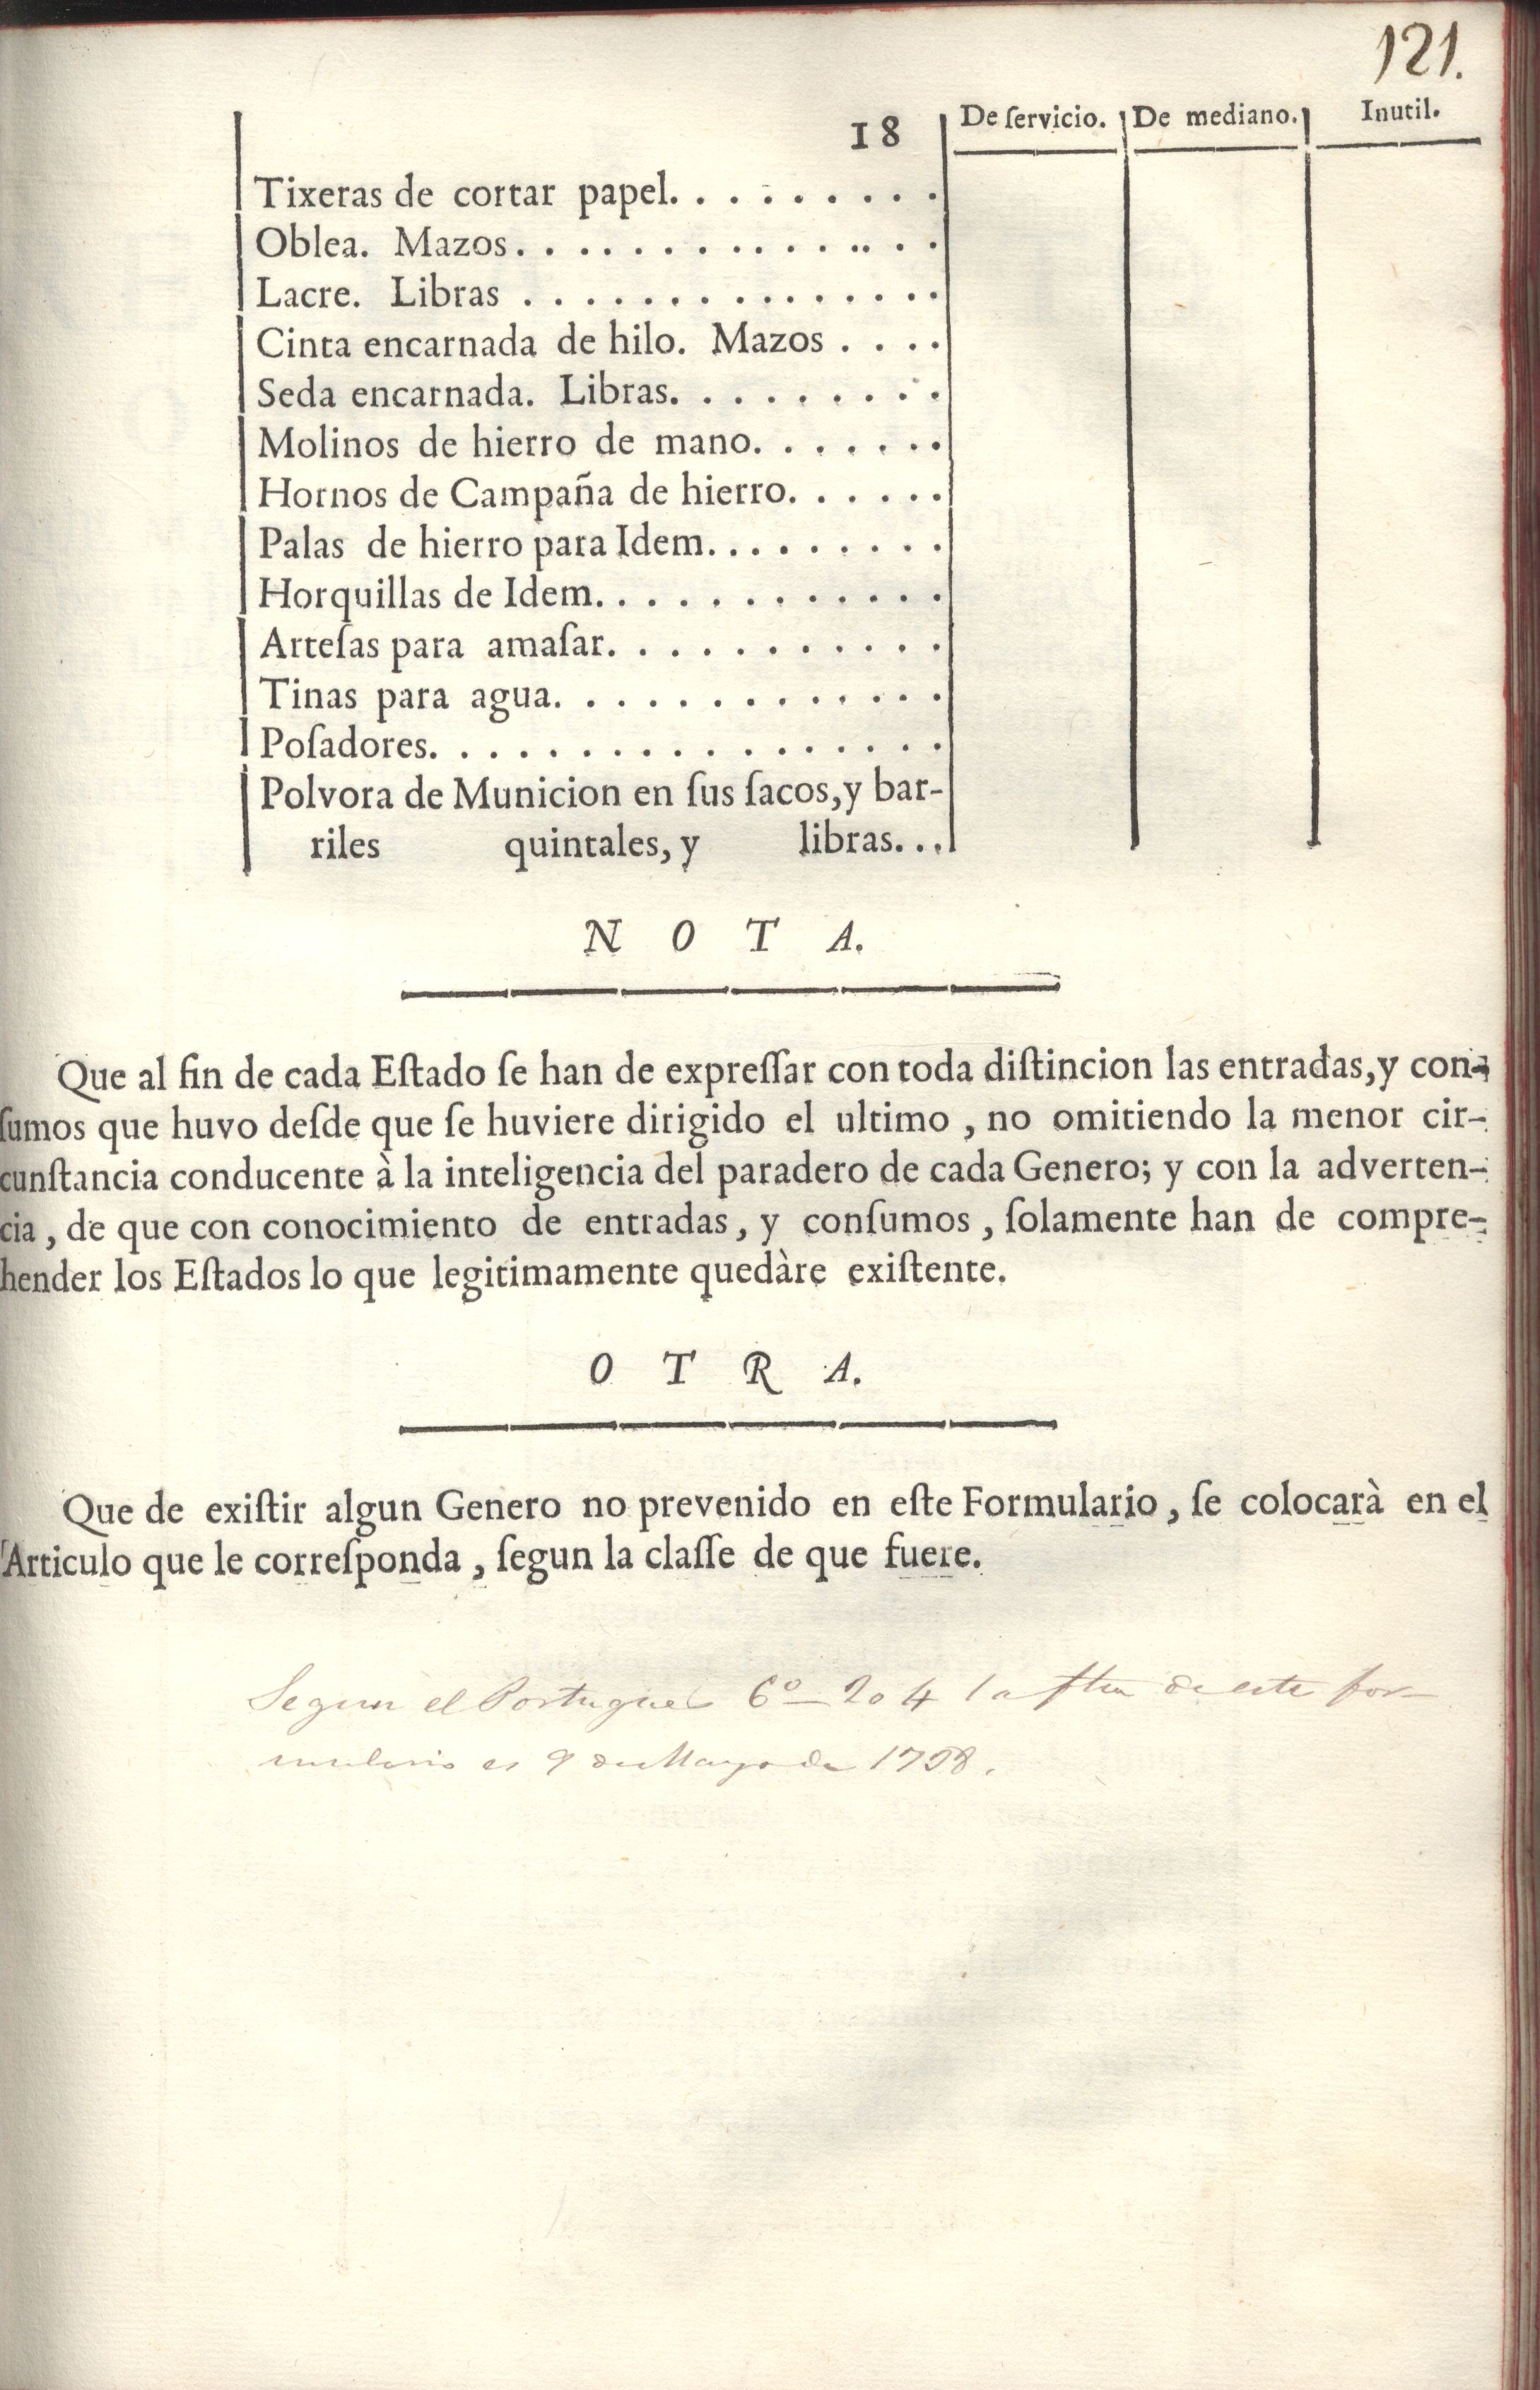 121.
18 De ſervicio. De mediano. Inutil.
Tixeras de cortar papel. . . . . . . . .
Oblea. Mazos. . . . . . . . . . . . . . .
Lacre. Libras . . . . . . . . . . . . . .
Cinta encarnada de hilo. Mazos . . . .
Seda encarnada. Libras. . . . . . . . .
Molinos de hierro de mano. . . . . . .
Hornos de Campaña de hierro. . . . . .
Palas de hierro para Idem. . . . . . . . .
Horquillas de Idem. . . . . . . . . . . .
Arteſas para amaſar. . . . . . . . . . .
Tinas para agua. . . . . . . . . . . . .
Poſadores. . . . . . . . . . . . . . . . .
Polvora de Municion en ſus ſacos, y bar-
riles quintales, y libras. . .
N O T A.
Que al fin de cada Eſtado ſe han de expreſſar con toda diſtincion las entradas, y con-
ſumos que huvo deſde que ſe huviere dirigido el ultimo , no omitiendo la menor cir-
cunſtancia conducente à la inteligencia del paradero de cada Genero; y con la adverten-
cia , de que con conocimiento de entradas , y conſumos , ſolamente han de compre-
hender los Eſtados lo que legitimamente quedàre exiſtente.
O T R A.
Que de exiſtir algun Genero no prevenido en eſte Formulario , ſe colocarà en el
Articulo que le correſponda , ſegun la claſſe de que fuere.
Segun el Portugues 6º 204 la de este for-
mulario es 9 de Mayo de 1758.